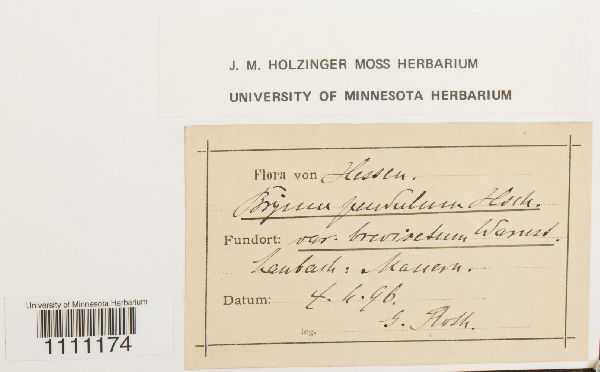 J. M. HOLZINGER MOSS HERBARIUM
UNIVERSITY OF MINNESOTA HERBARIUM
Flora von Hessen.
Bryum pendulum Hsch.
Fundort: var. brevisetum Warnst.
Laubach: Mauern.
Datum: 4. 6. 96.
leg. G. Roth.
University of Minnesota Herbarium
1111174